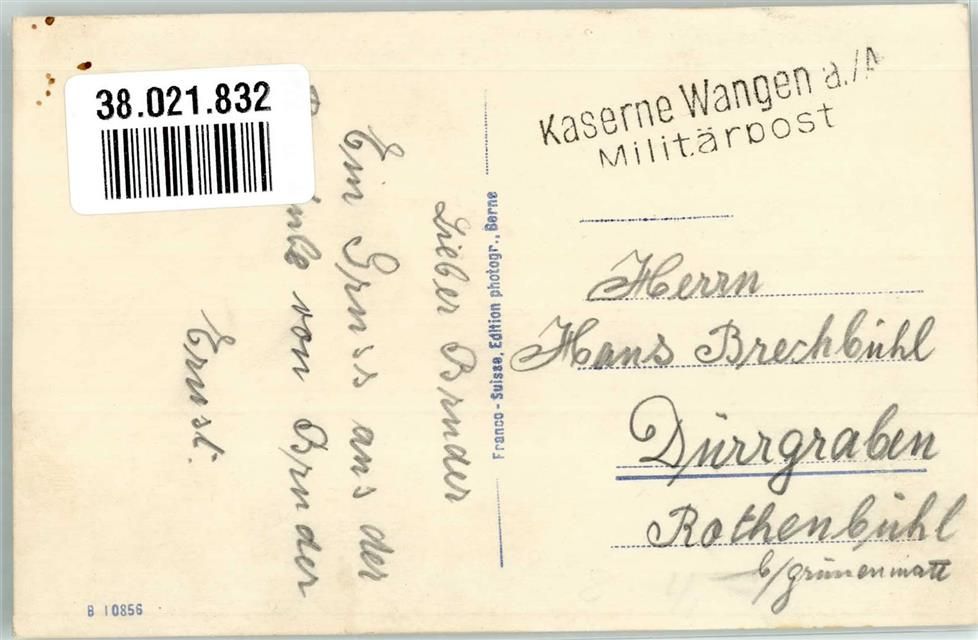 38.021.832
Kaserne Wangen a./A
Militärpost
Herrn
Hans Brechbühl
Dürrgraben
Rothenbühl
b/grünenmatt
Franco - Suisse, Edition photogr., Berne
Lieber Bruder
Ein Gruss aus der
von Bruder
Ernst.
B 10856